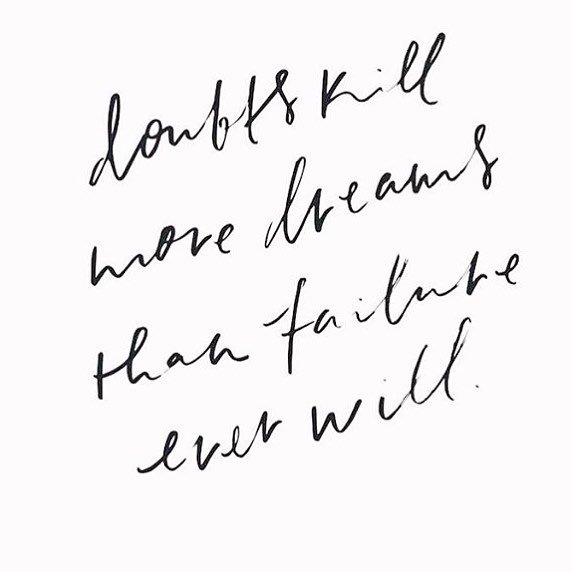 doubts kill
more dreams
than failure
ever will.